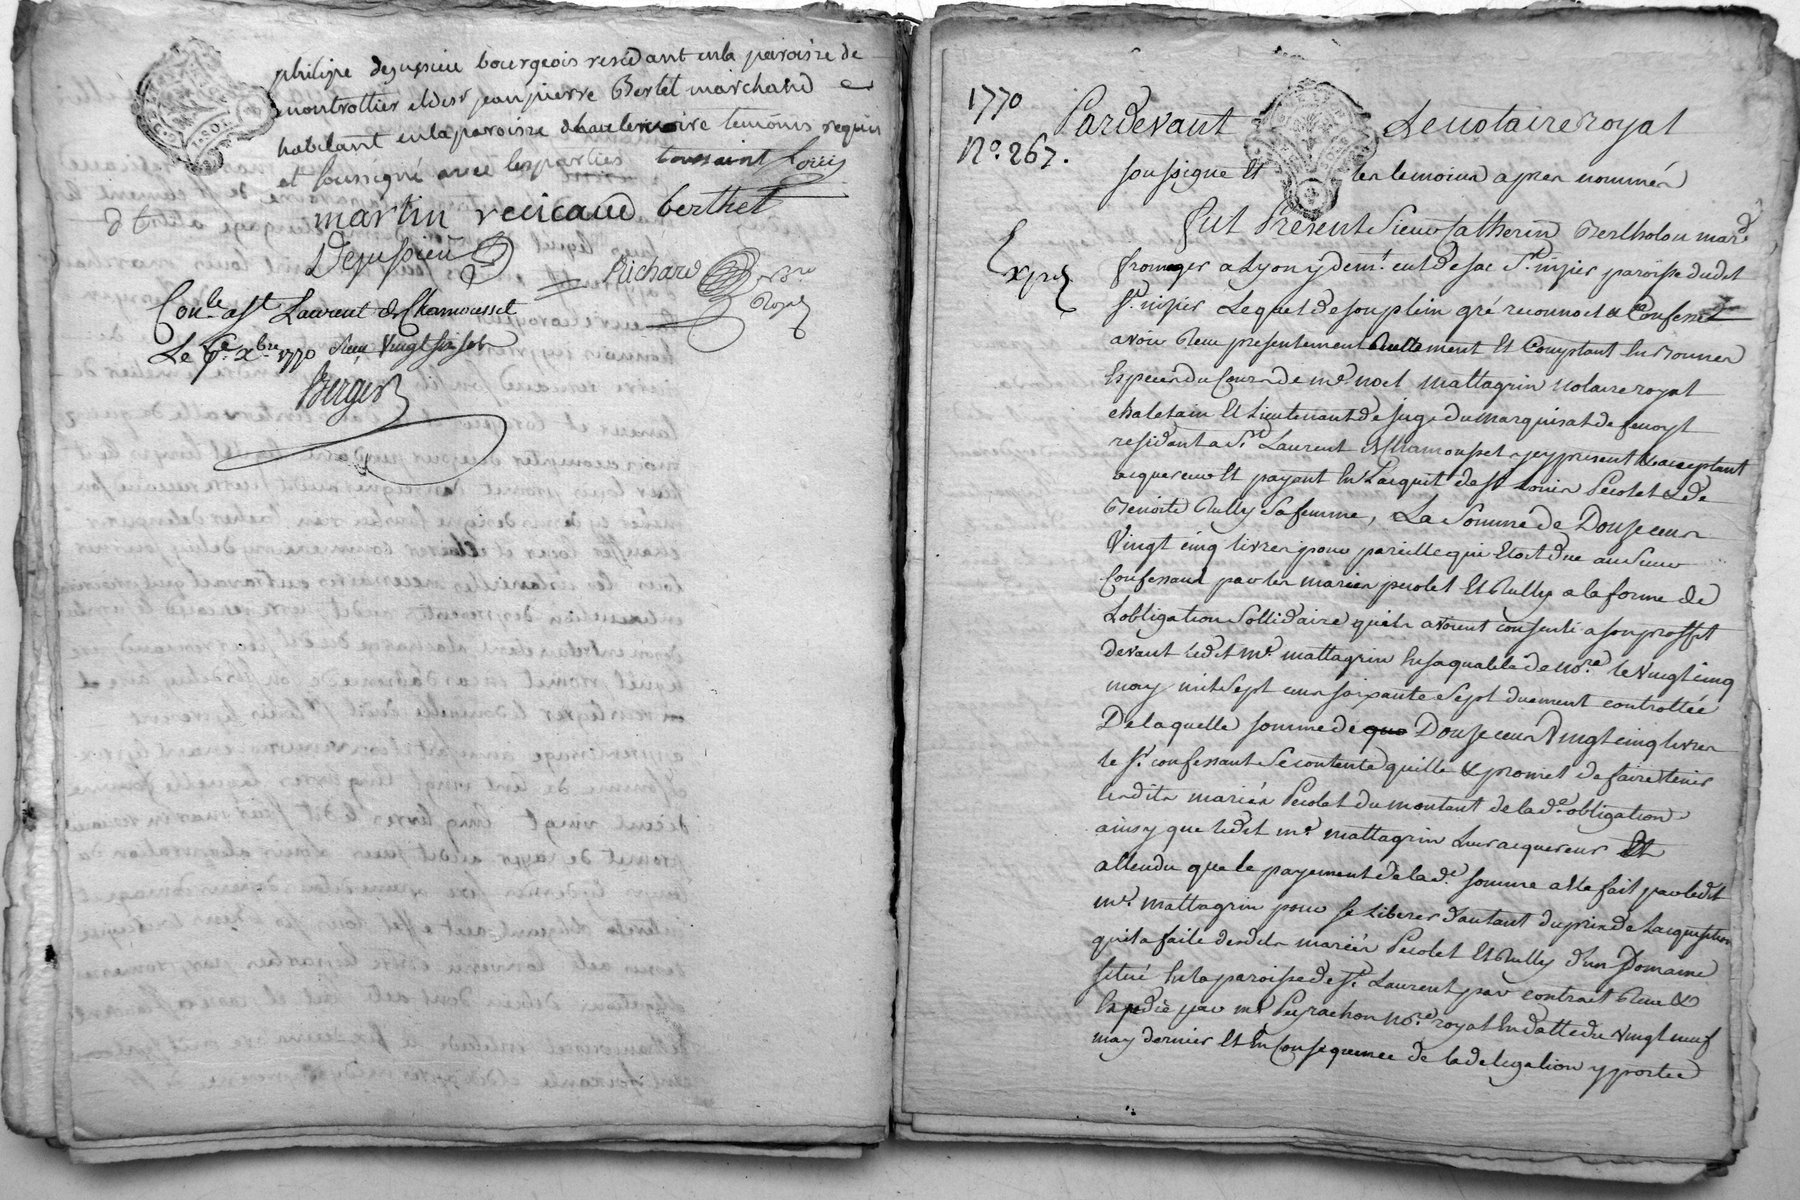 philipe dejussieu bourgeois residant enla paroisse de
montrottier et dis.r jean pierre Bertet marchand
habitant en la paroisse temoins requis
et soussigné avec les parties toussaint Louis
martin recicaud berthet
Dejussieu Richard n.re Royal
Con.le a st Laurent de Chamousset
Le 9.e xbre 1770 Reçu vingt six sols
Berger
1770
N.o 267.
Pardevant Le notaire royal
soussigné Et les temoins apres nommés
Exp.é
fut Présent Sieur Catherin Bertholon mar.d
fromager a Lyon y dem.t cul de sac S.t nizier paroisse dudit
S.t nizier Lequel de son plein gré reconnoit & Confesse
avoir Reçu presentement Reellement Et Comptant En Bonnes
Especes du Cours de m.e noel mattagrin notaire royal
chatelain Et Lieutenant de juge du marquisat de fenoyl
residant a S.t Laurent de Chamousset icy present & acceptant
acquereur Et payant En L'acquit de S.r Louis Pecolet & de
Benoite Rully Sa femme, La Somme de Douse cens
Vingt cinq livres pour pareille qui Etoit due au Sieur
Confessant par les mariés pecolet Et Rully a la forme de
Lobligation Sollidaire quils avoient consenti a son proffit
devant ledit m.e mattagrin En sa qualité de no.re le vingt cinq
may mil Sept cens soixante Sept duement controllée
De laquelle somme de que Douse cens Vingt cinq livres
le S.r confessant Se contente quitte & promet de faire tenir
lesdits mariés Pecolet du montant de lad.e obligation
ainsy que ledit m.e mattagrin Leur acquereur Et
attendu que le payement de la d.e somme a Eté fait par ledit
m.e mattagrin pour se Liberer d'autant du prix de Lacquisition
quil a faite desdits mariés Pecolet Et Rully d'un Domaine
situé En la paroisse de S.t Laurent par contract Reçu &
Expedié par m.e Peyrachon no.re royal En datte du vingt neuf
may dernier Et En Consequence de la delegation y portée